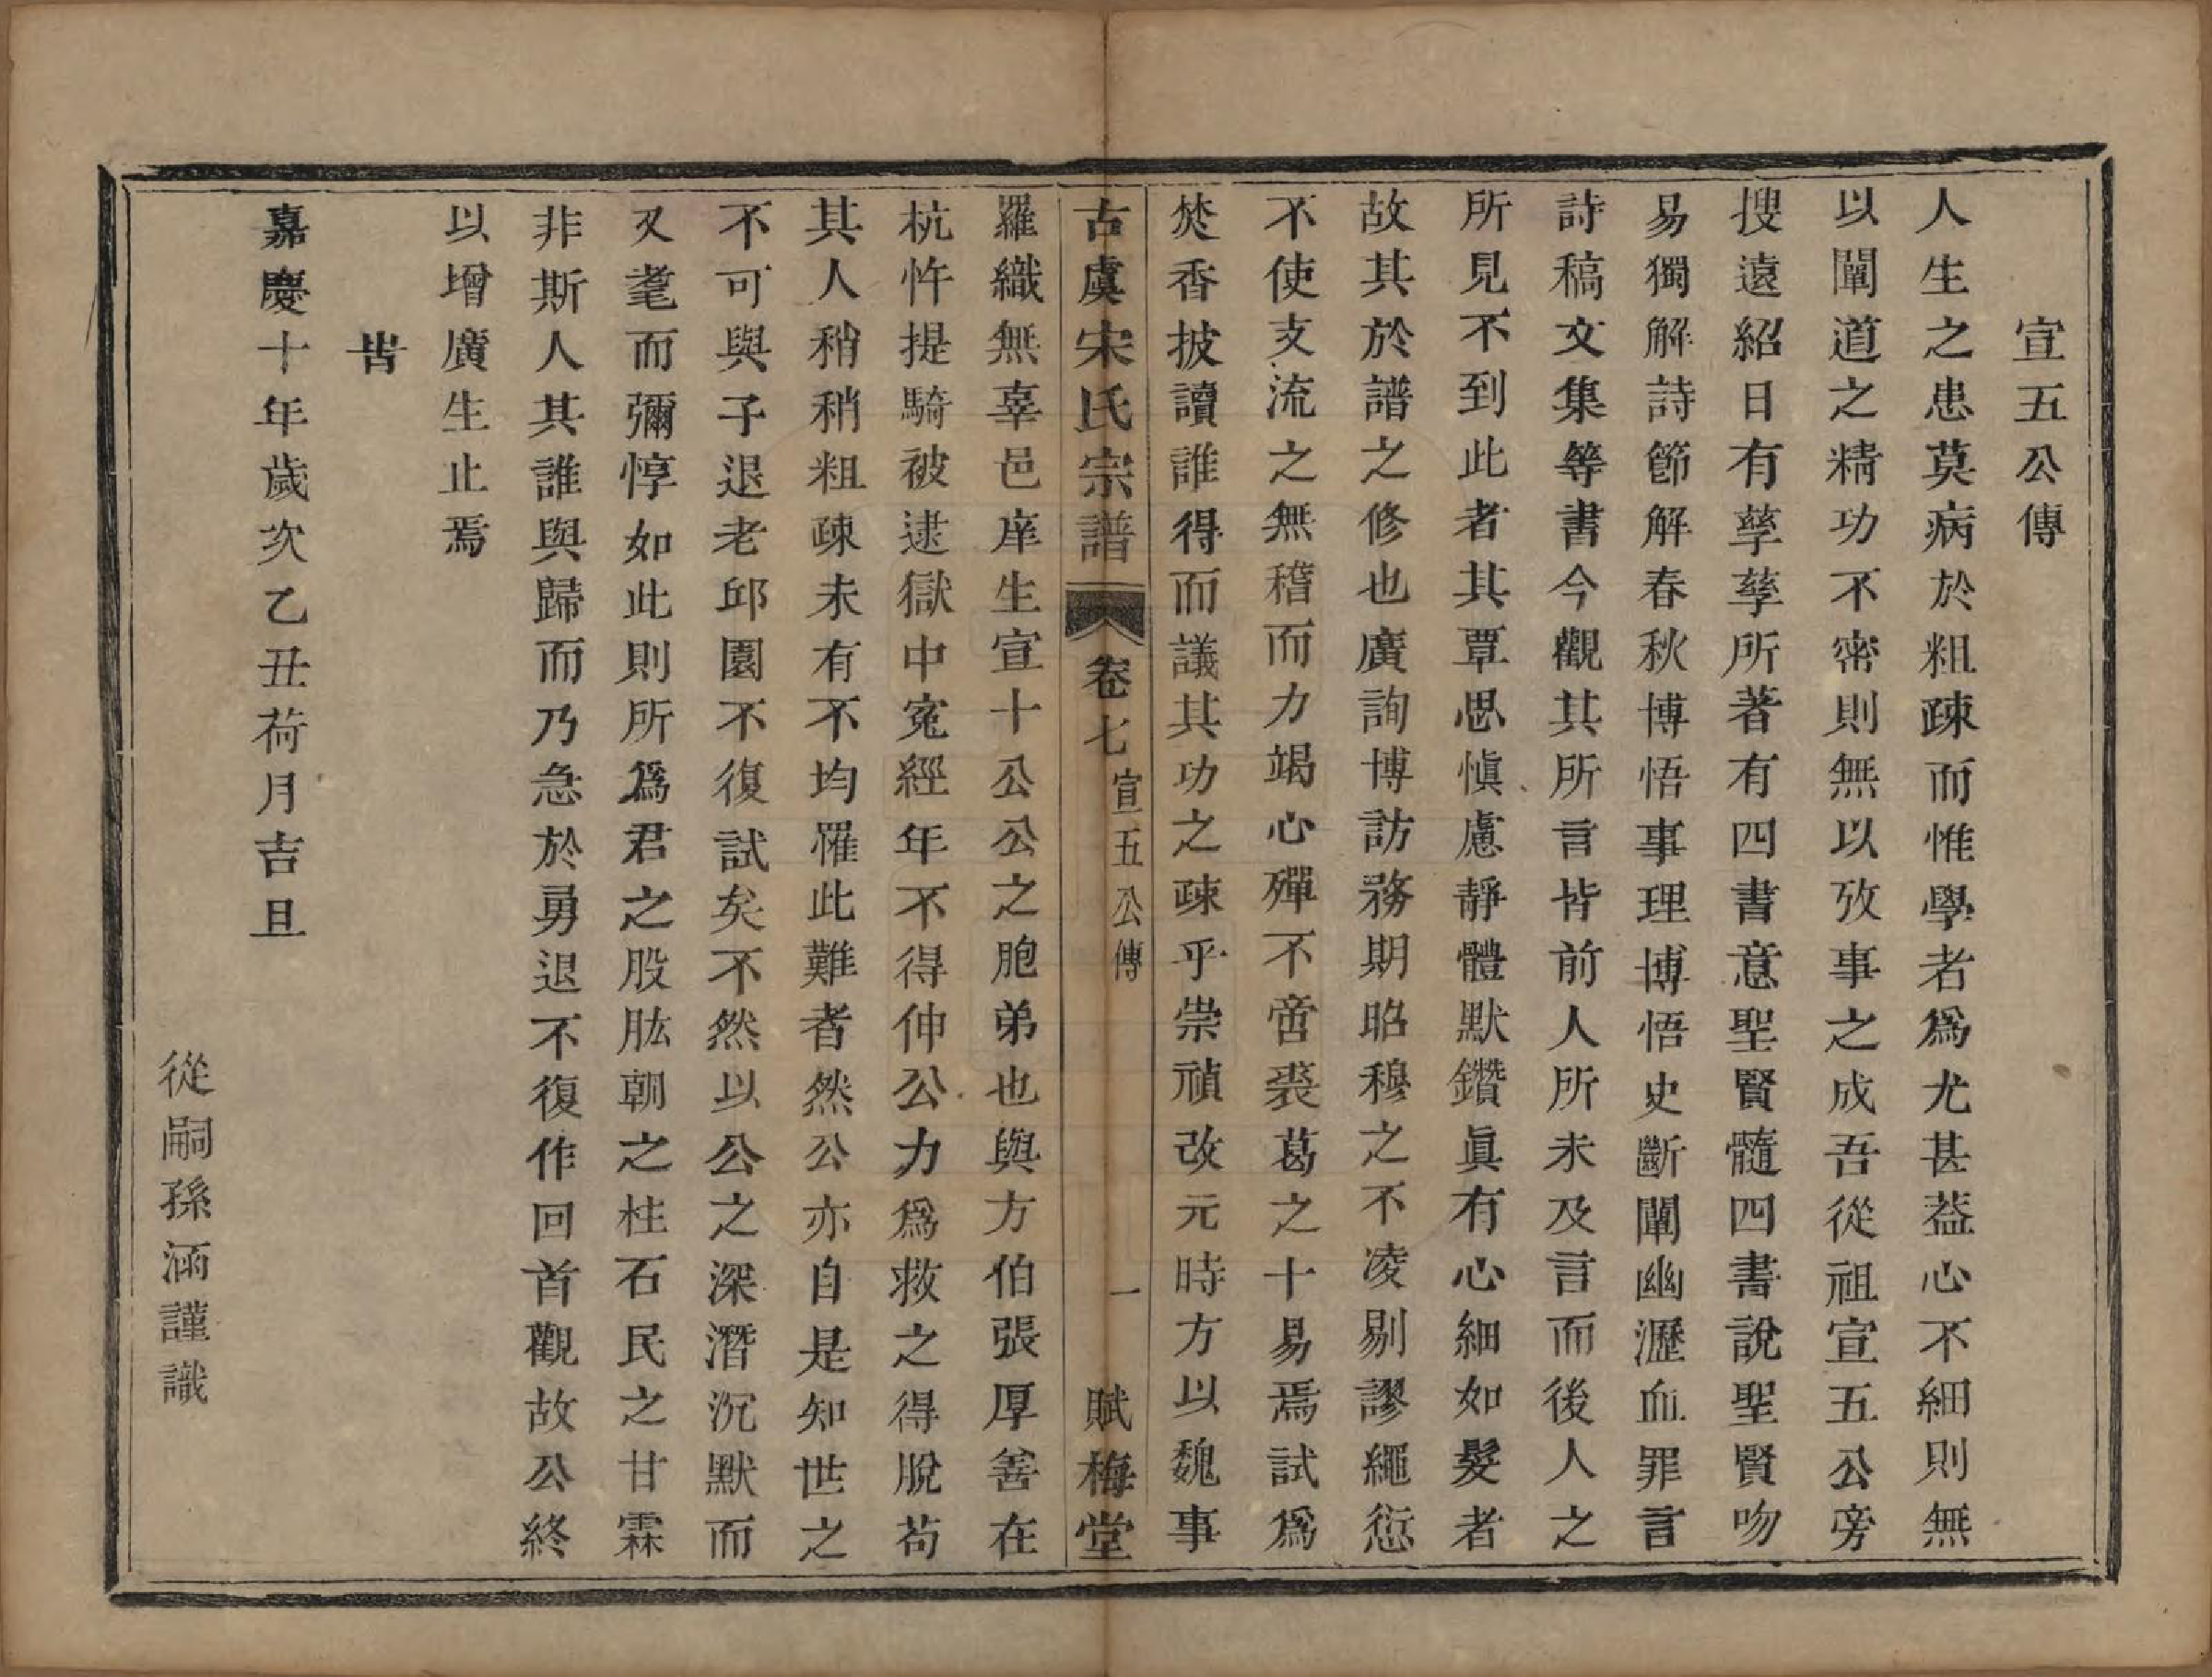 宣五公傳
人生之患莫病於粗疎而惟學者爲尤甚葢心不細則無
以闡道之精功不密則無以攷事之成吾從祖宣五公旁
搜遠紹日有孳孳所著有四書意聖賢髓四書說聖賢吻
易獨解詩節解春秋博悟事理博悟史斷闡幽瀝血罪言
詩稿文集等書今觀其所言皆前人所未及言而後人之
所見不到此者其覃思慎慮靜體默鑽眞有心細如髮者
故其於譜之修也廣詢博訪務期昭穆之不凌剔謬繩愆
不使支流之無稽而力竭心殫不啻裘葛之十易焉試爲
焚香披讀誰得而議其功之疎乎崇禎改元時方以魏事
古虞宋氏宗譜 卷七 宣五公傳 一 賦梅堂
羅織無辜邑庠生宣十公公之胞弟也與方伯張厚善在
杭忤提騎被逮獄中寃經年不得伸公力爲救之得脫茍
其人稍稍粗疎未有不均罹此難者然公亦自是知世之
不可與予退老邱園不復試矣不然以公之深潛沉默而
又耄而彌惇如此則所爲君之股肱朝之柱石民之甘霖
非斯人其誰與歸而乃急於勇退不復作回首觀故公終
以增廣生止焉
旹
嘉慶十年歲次乙丑荷月吉旦
從嗣孫涵謹識